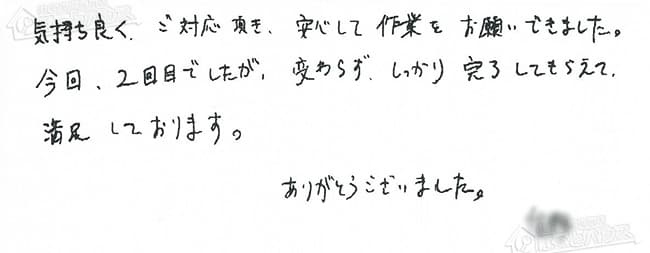 気持ち良く、ご対応頂き、安心して作業をお願いできました。
今回、2回目でしたが、変わらず、しっかり完了してもらえて、
満足しております。
ありがとうございました。